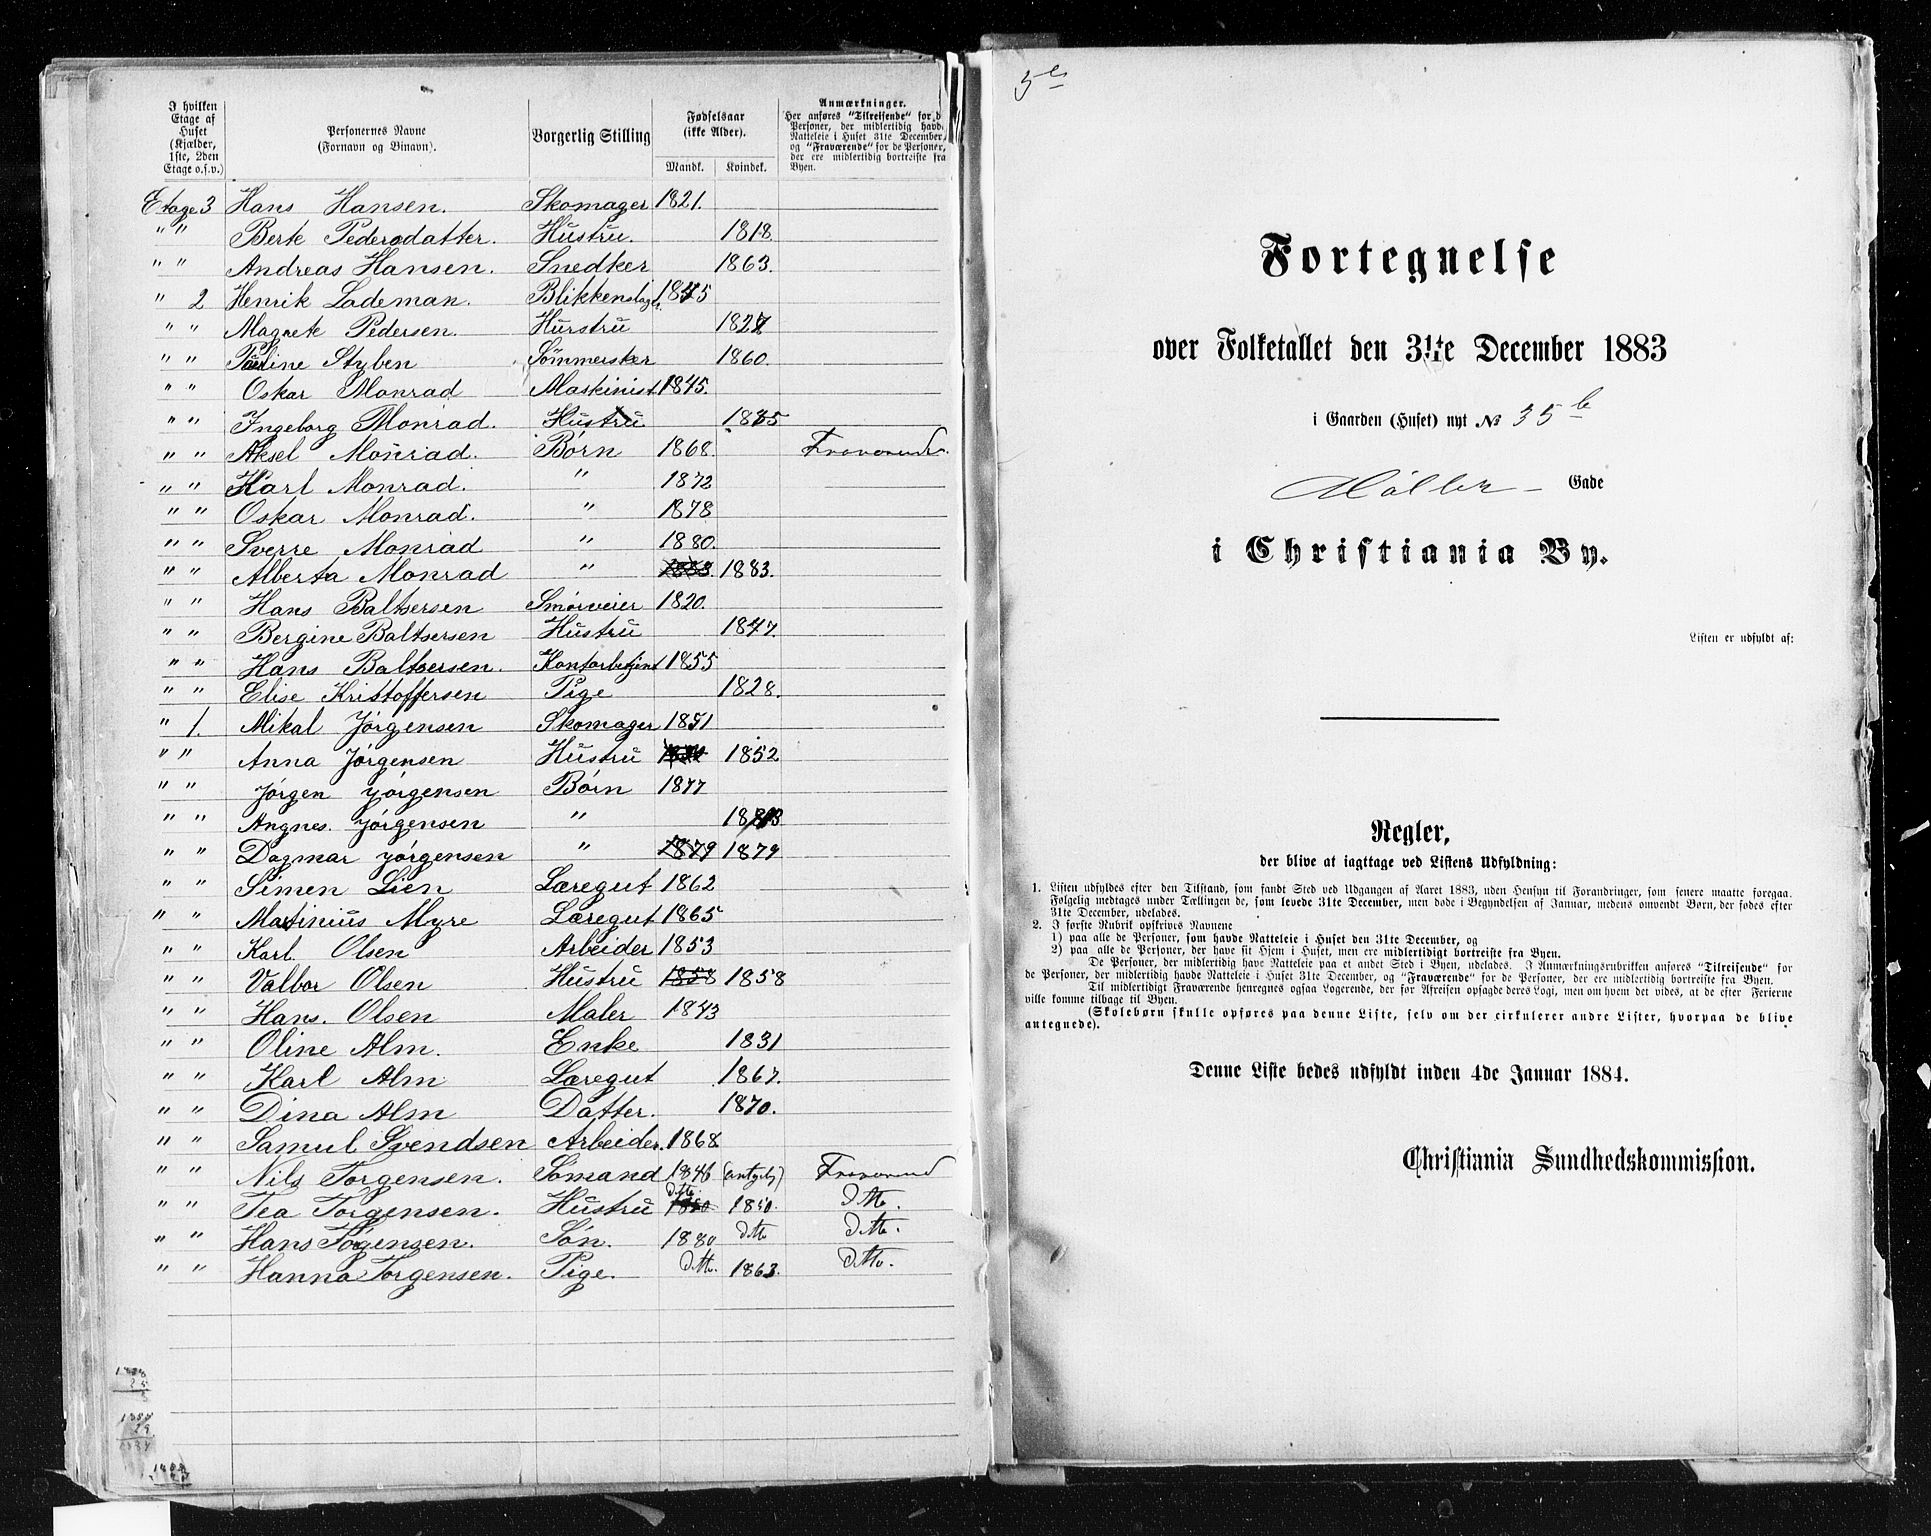 I hvilken Etage af Huset (Kjælder, 1ste, 2den Etage o.s.v.) | Personernes Navne (Fornavn og Binavn). | Borgerlig Stilling | Fødselsaar (ikke Alder). Mandk. Kvindek. | Anmærkninger. Her anføres "Tilreisende" for de Personer, der midlertidig havde Natteleie i Huset 31te December, og "Fraværende" for de Personer, der ere midlertidig bortreiste fra Byen.
Etage 3 Hans Hansen. Skomager 1821.
" " Berte Pedersdatter. Hustru. 1818.
" " Andreas Hansen. Snedker 1863.
" 2 Henrik Lademan. Blikkenslager
" " Magrete Pedersen. Hurstru
" " Styben Sømmersker 1860.
" " Oskar Monrad Maskinist 1845.
" " Ingeborg Monrad. Hustru
" " Aksel Monrad. Børn 1868. Fraværende.
" " Karl Monrad. " 1872
" " Oskar Monrad. " 1878
" " Sverre Monrad " 1880.
" " Alberta Monrad " 1883. 1883.
" " Hans Baltsersen Smørveier 1820.
" " Bergine Baltsersen Hustru 1847.
" " Hans Baltsersen. Kontorbetjent 1855
" " Elise Kristoffersen Pige 1828.
" 1. Mikal Jørgensen Skomager 1851
" " Anna Jørgensen Hustru 1852
" " Jørgen Jørgensen Børn 1877
" " Angnes. Jørgensen "
" " Dagmar Jørgensen " 1879 1879
" " Simen Lien Læregut 1862
" " Martinius Myre Læregut 1865
" " Karl. Olsen Arbeider 1853
" " Valbor Olsen Hustru 1858 1858
" " Hans. Olsen Maler 1843
" " Oline Alm. Enke 1831
" " Karl Alm Læregut 1867.
" " Dina Alm Datter. 1870.
" " Samul Svendsen Arbeider. 1868
" " Nils Torgensen. Sømand 1846 Fraværend
" " Tea Torgensen. Hustru 1850 1850. dtto.
" " Hans Torgensen. Søn. 1880 dtto dtto.
" " Hanna Torgensen. Pige. dtto. 1863. dtto.
Fortegnelse
over Folketallet den 31te December 1883
i Gaarden (Huset) nyt № 35 b
Møller Gade
i Christiania By.
Listen er udfyldt af:
Regler,
der blive at iagttage ved Listens Udfyldning:
1. Listen udfyldes efter den Tilstand, som fandt Sted ved Udgangen af Aaret 1883, uden Hensyn til Forandringer, som senere maatte foregaa.
Følgelig medtages under Tællingen de, som levede 31te December, men døde i Begyndelsen af Januar, medens omvendt Børn, der fødes efter
31te December, udelades.
2. I første Rubrik opskrives Navnene
1) paa alle de Personer, som havde Natteleie i Huset den 31te December, og
2) paa alle de Personer, der have sit Hjem i Huset, men ere midlertidigt bortreiste fra Byen.
De Personer, der midlertidig have Natteleie paa et andet Sted i Byen, udelades. I Anmærkningsrubrikken anføres "Tilreisende" for
de Personer, der midlertidig havde Natteleie i Huset 31te December, og "Fraværende" for de Personer, der ere midlertidig bortreiste fra Byen.
Til midlertidigt Fraværende henregnes ogsaa Logerende, der før Afreisen opsagde deres Logi, men om hvem det vides, at de efter Ferierne
ville komme tilbage til Byen.
(Skolebørn skulle opføres paa denne Liste, selv om der cirkulerer andre Lister, hvorpaa de blive
antegnede).
Denne Liste bedes udfyldt inden 4de Januar 1884.
Christiania Sundhedskommission.